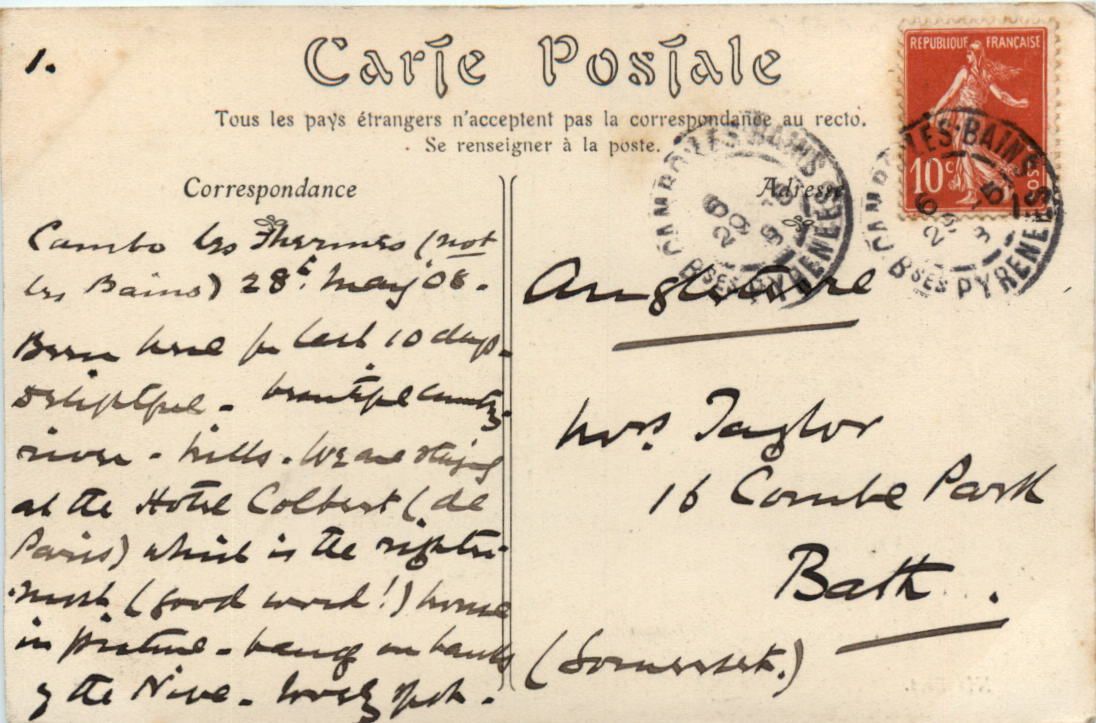 1.
Carte Postale
Tous les pays étrangers n'acceptent pas la correspondance au recto.
Se renseigner à la poste.
REPUBLIQUE FRANÇAISE
10c
CAMBO-LES-BAINS
BSES PYRENEES
CAMBO-LES-BAINS
BSES PYRENEES
Correspondance
Cambo les Thermes (not
les Bains) 28t May 08.
Been here for last 10 days.
Delightful - beautiful country
river - hills. We are staying
at the Hotel Colbert (de
Paris) which is the righter-
most (good word!) house
in picture - hangs on banks
of the Nive. Lovely spot.
Adresse
Angleterre
Mrs. Taylor
16 Combe Park
Bath.
(Somerset.)